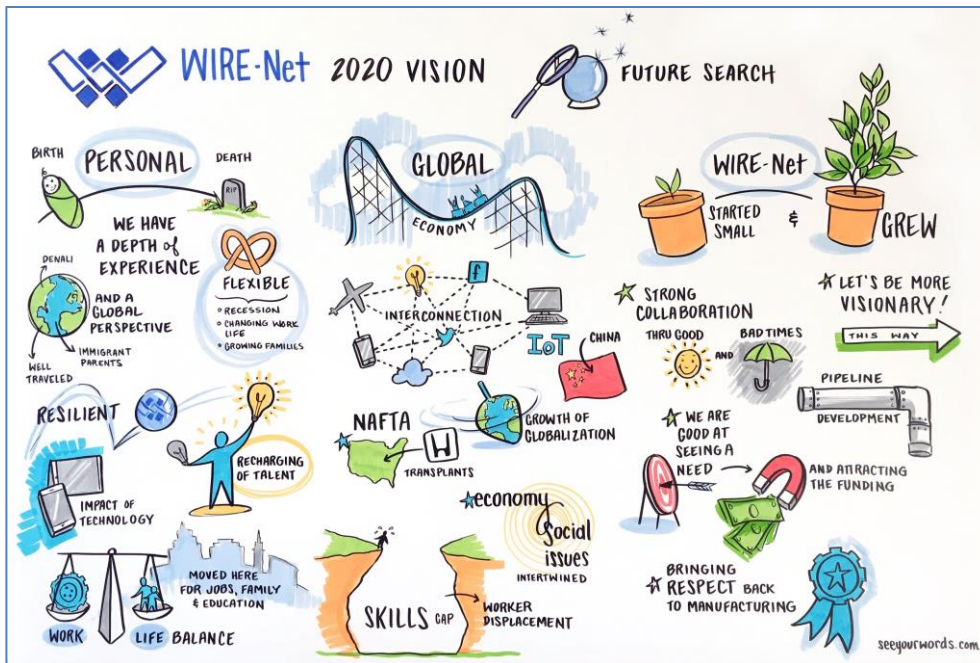 WIRE-Net 2020 VISION
FUTURE SEARCH
BIRTH
PERSONAL
DEATH
RIP
WE HAVE
A DEPTH of
EXPERIENCE
DENALI
AND A
GLOBAL
PERSPECTIVE
IMMIGRANT
PARENTS
WELL
TRAVELED
FLEXIBLE
RECESSION
CHANGING WORK
LIFE
GROWING FAMILIES
RESILIENT
IMPACT OF
TECHNOLOGY
RECHARGING
OF TALENT
MOVED HERE
FOR JOBS, FAMILY
& EDUCATION
WORK
LIFE BALANCE
GLOBAL
ECONOMY
f
INTERCONNECTION
IoT
CHINA
NAFTA
H
TRANSPLANTS
GROWTH OF
GLOBALIZATION
economy
Social
issues
INTERTWINED
SKILLS GAP
WORKER
DISPLACEMENT
WIRE-Net
STARTED
SMALL
&
GREW
STRONG
COLLABORATION
THRU GOOD
AND
BAD TIMES
LET'S BE MORE
VISIONARY!
THIS WAY
PIPELINE
DEVELOPMENT
WE ARE
GOOD AT
SEEING A
NEED
AND ATTRACTING
THE FUNDING
BRINGING
RESPECT BACK
TO MANUFACTURING
seeyourwords.com